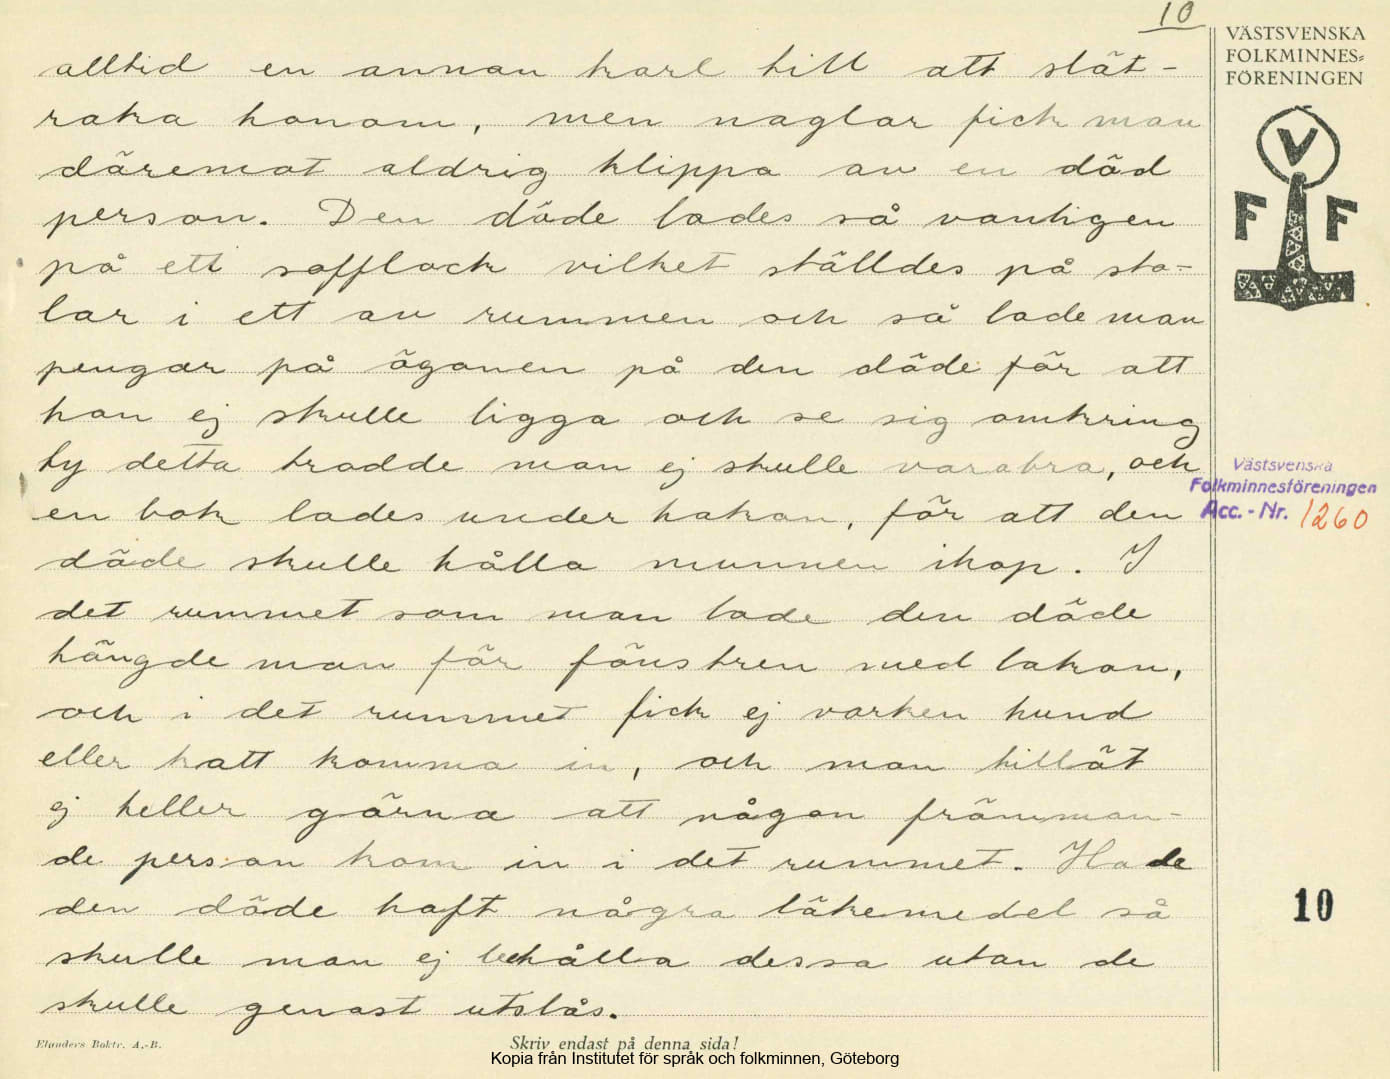 10
alltid en annan karl till att slät-
raka honom, men naglar fick man
däremot aldrig klippa av en död
person. Den döde lades så vanligen
på ett soffлock vilket ställdes på sto-
lar i ett av rummen och så lade man
pengar på ögonen på den döde för att
han ej skulle ligga och se sig omkring
ty detta trodde man ej skulle vara bra, och
en bok lades under hakan, för att den
döde skulle hålla munnen ihop. I
det rummet som man lade den döde
hängde man för fönstren med lakan,
och i det rummet fick ej varken hund
eller katt komma in, och man tillät
ej heller gärna att någon främman-
de person kom in i det rummet. Hade
den döde haft några läkemedel så
skulle man ej behålla dessa utan de
skulle genast utslås.
VÄSTSVENSKA
FOLKMINNES=
FÖRENINGEN
V
F F
Västsvenska
Folkminnesföreningen
Acc.-Nr. 1260
10
Elanders Boktr. A.-B.
Skriv endast på denna sida!
Kopia från Institutet för språk och folkminnen, Göteborg